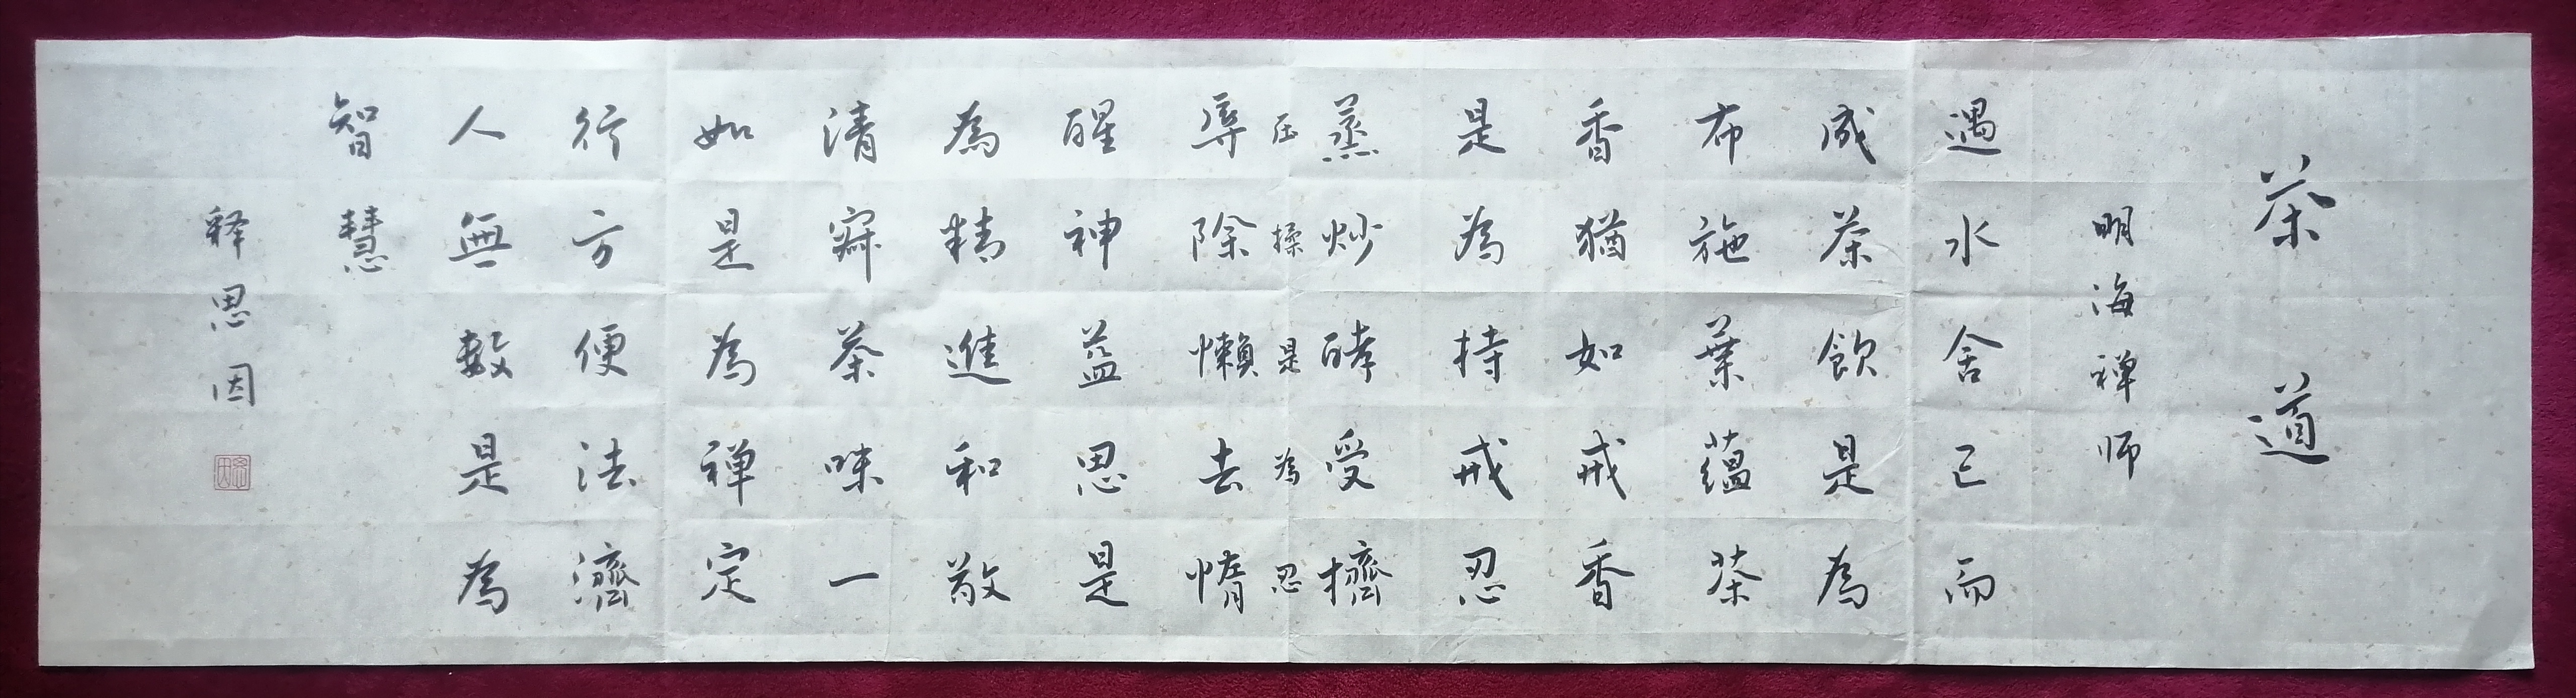 茶道
明海禅师
遇水舍己而
成茶飲是為
布施葉蘊茶
香猶如戒香
是為持戒忍
蒸炒酵受擠
压揉是為忍
辱除懒去惰
醒神益思是
為精進和敬
清寂茶味一
如是為禅定
行方便法濟
人無數是為
智慧
释思因